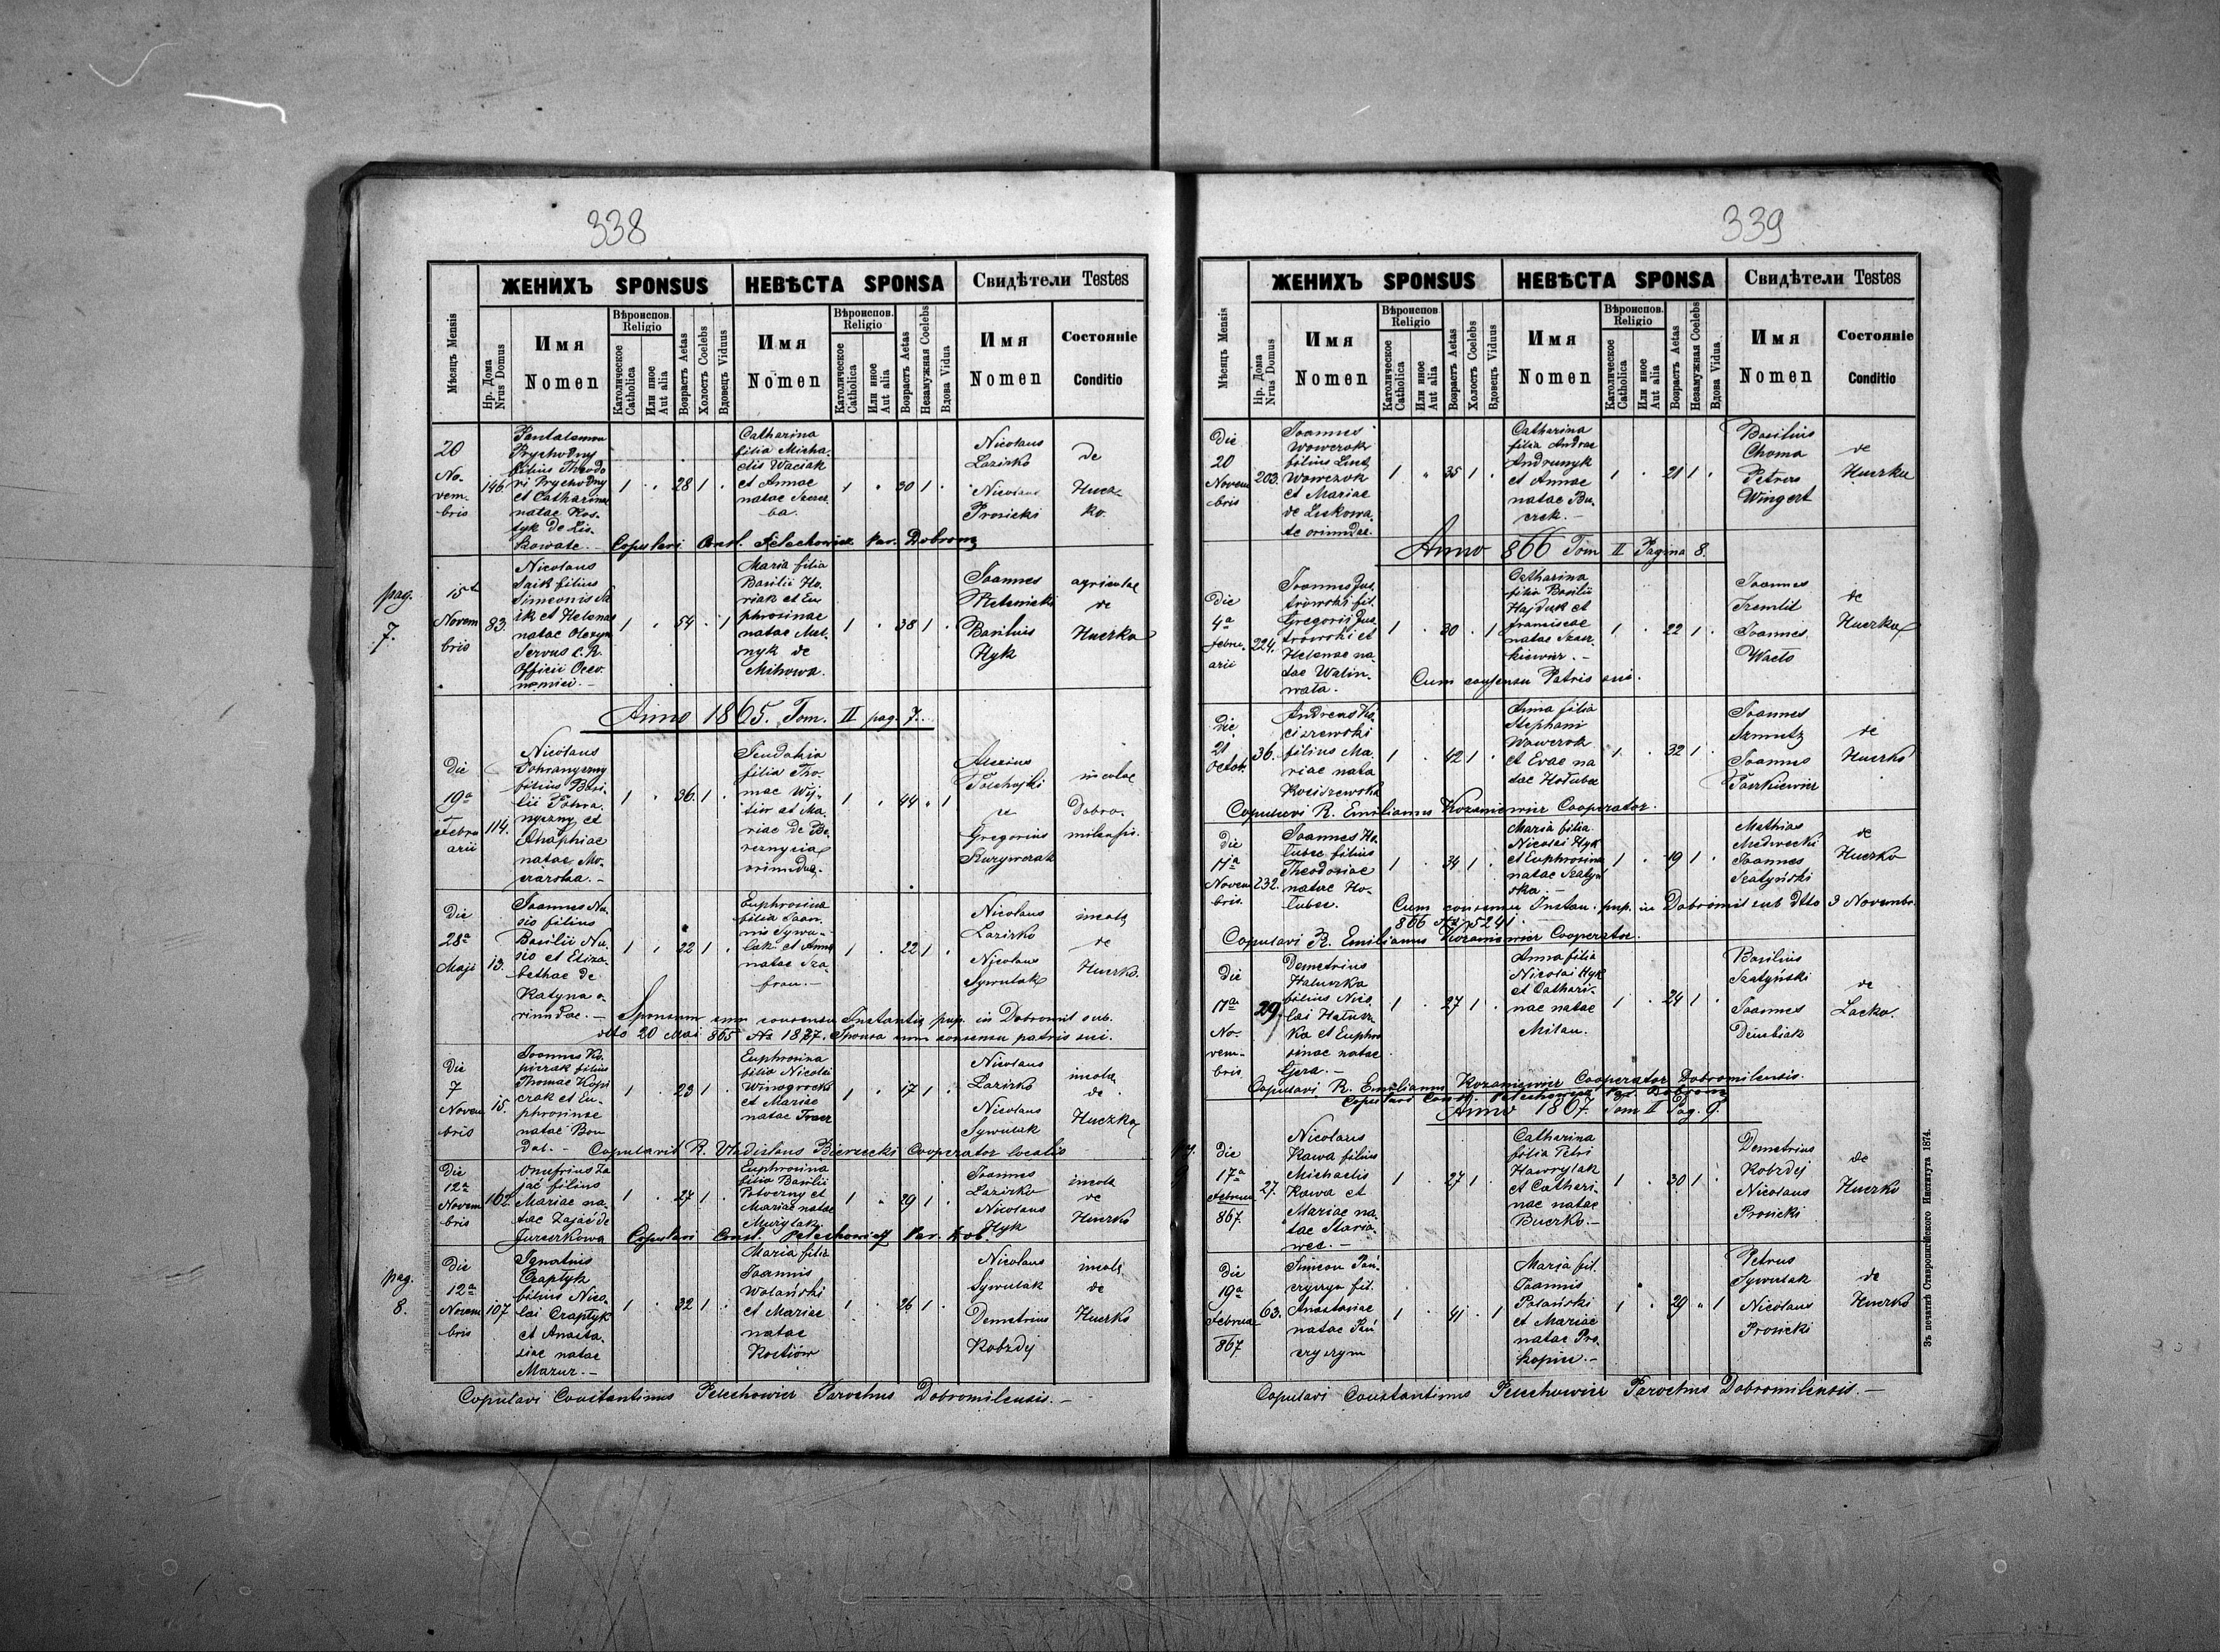 338
ЖЕНИХЪ SPONSUS НЕВѢСТА SPONSA Свидѣтели Testes
Мѣсяцъ Mensis
Нр. Дома Nrus Domus
Имя Nomen
Вѣроиспов. Religio
Католическое Catholica
Или иное Aut alia
Возрастъ Aetas
Холостъ Coelebs
Вдовецъ Viduus
Имя Nomen
Вѣроиспов. Religio
Католическое Catholica
Или иное Aut alia
Возрастъ Aetas
Незамужная Coelebs
Вдова Vidua
Имя Nomen
Состояніе Conditio
20
No-
vem-
bris
146.
Pantalemon
Prychodny
filius Theodo
ri Prychodny
et Catharinae
natae Kos-
tyk de Lis-
kowate.
1 28 1
Catharina
filia Micha-
elis Waciak
et Annae
natae
ba.
1 30 1
Nicolaus
Lazirko
Nicolaus
Prosicki
de
Hucz-
ko.
Copulavi Const. Pelechowicz Par. Dobrom
pag.
7.
15a
Novem
bris
83.
Nicolaus
Saik filius
Simeonis Sa
ik et Helenae
natae
Servus C. R.
Officii Oeco-
nomici.
1 54 1
Maria filia
Basilii Ho-
riak et Eu
phrosinae
natae Mel-
nyk de
Mihowa.
1 38 1
Joannes
Basilius
Hyk
agricolae
de
Huczko
Anno 1865. Tom. II pag. 7.
Die
19a
Febru
arii
114.
Nicolaus
Pohranyczny
filius Basi-
lii Pohra-
nyczny et
Anaphiae
natae Mo-
1 36. 1
Teudokia
filia Tho-
mae Wij-
tiw et Ma-
riae de Be-
reznycia
oriunda.
1 44 1
Alexius
et
Gregorius
incolae
Dobro-
milensis.
Die
28a
Maji
13.
Joannes Nu-
sio filius
Basilii Nu-
sio et Eliza-
bethae de
Katyna o-
riundae.
1 22 1
Euphrosina
filia Joan-
nis Sywu-
lak et Annae
natae Sza-
fran.
1 22 1
Nicolaus
Lazirko
Nicolaus
Sywulak
incolae
de
Huczko.
Sponsum cum consensu Instantiae pup. in Dobromil sub.
dtto 20 Mai 865 No 1827. Sponsa cum consensu patris sui.
Die
7
Novem
bris
15.
Joannes Ko-
pierak filius
Thomae Kopi
erak et Eu-
phrosinae
natae Bon
dal.
1 23 1
Euphrosina
filia Nicolai
Winogrocki
et Mariae
natae
1 17 1
Nicolaus
Lazirko
Nicolaus
Sywulak
incolae
de
Huczko
Copulavit R. Vladislaus Bierzecki Cooperator localis
Die
12a
Novem
bris
162.
Onufrius Za
jać filius
Mariae na-
tae Zajać de
Jureczkowa
1 27 1
Euphrosina
filia Basilii
Potoczny et
Mariae natae
1 29 1
Joannes
Lazirko
Nicolaus
Hyk
incolae
de
Huczko
Copulavi Const. Pelechowicz Par. Dob.
pag.
8.
Die
12a
Novem
bris
107
Ignatius
Czaptyk
filius Nico-
lai Czaptyk
et Anasta-
siae natae
Mazur.
1 32 1
Maria filia
Joannis
Wolański
et Mariae
natae
Kostiów
1 26 1
Nicolaus
Sywulak
Demetrius
Kobzdij
incolae
de
Huczko
Copulavi Constantinus Pelechowicz Parochus Dobromilensis.
339
ЖЕНИХЪ SPONSUS НЕВѢСТА SPONSA Свидѣтели Testes
Мѣсяцъ Mensis
Нр. Дома Nrus Domus
Имя Nomen
Вѣроиспов. Religio
Католическое Catholica
Или иное Aut alia
Возрастъ Aetas
Холостъ Coelebs
Вдовецъ Viduus
Имя Nomen
Вѣроиспов. Religio
Католическое Catholica
Или иное Aut alia
Возрастъ Aetas
Незамужная Coelebs
Вдова Vidua
Имя Nomen
Состояніе Conditio
Die
20
Novem
bris
203.
Joannes
Wowczok
filius Lucae
Wowczok
et Mariae
de Liskowa-
te oriundae.
1 35 1
Catharina
filia Andreae
Andrunyk
et Annae
natae Bu-
czek.
1 21 1
Basilius
Choma
Petrus
Wingert
de
Huczko
Anno 866 Tom II Pagina 8.
Die
4a
Febru-
arii
224.
Joannes Jus-
trowski fil.
Gregorii Jus
trowski et
Helenae na-
tae Walin-
wata.
1 30 1
Catharina
filia Basilii
Hajduk et
Franciscae
natae
kiewicz.
1 22 1
Joannes
Joannes
de
Huczko
Cum consensu Patris sui.
Die
21
Octob.
36.
Andreas Ko-
ciszewski
filius Ma-
riae nata
1 42 1
Anna filia
Stephani
Wowczok
et Evae na
tae Hołubec
1 32 1
Joannes
Szmutz
Joannes
de
Huczko
Copulavi R. Emilianus Kozaniewicz Cooperator.
Die
17a
Novem
bris.
232.
Joannes Ho-
łubec filius
Theodosiae
natae Ho-
łubec.
1 34 1
Maria filia
Nicolai Hyk
et Euphrosina
natae Szatyń
ska.
1 19 1
Mathias
Medwecki
Joannes
Szatyński
de
Huczko
Cum consensu Instan. pup. in Dobromil sub dtto 9 Novembr.
866 No 5241.
Copulavi R. Emilianus Kozaniewicz Cooperator.
Die
17a
No-
vem-
bris
29.
Demetrius
Hałuszka
filius Nico-
lai Hałusz-
ka et Euphro
sinae natae
Gera.
1 27 1
Anna filia
Nicolai Hyk
et Cathari-
nae natae
Milan.
1 24 1
Basilius
Szatyński
Joannes
Dziubiak
de
Lacko.
Copulavi R. Emilianus Kozaniewicz Cooperator Dobromilensis.
Copulavi Const. Pelechowicz Par. Dobrom
Anno 1867. Tom II Pag. 9.
pag.
9
Die
17a
Februa
867.
27.
Nicolaus
Kawa filius
Michaelis
Kawa et
Mariae na-
tae Staria-
wec.
1 27 1
Catharina
filia Petri
Hawrylak
et Cathari-
nae natae
Buczko.
1 30 1
Demetrius
Kobzdij
Nicolaus
Prosicki
de
Huczko
Die
19a
Februa
867
63.
Simeon Pań-
czyszyn fil.
Anastasiae
natae Pań
czyszyn
1 41 1
Maria fil.
Joannis
Polański
et Mariae
natae Pro-
kopiw.
1 29 1
Petrus
Sywulak
Nicolaus
Prosicki
de
Huczko
Copulavi Constantinus Pelechowicz Parochus Dobromilensis.
Зъ печатнѣ Ставропигійского Института 1874.